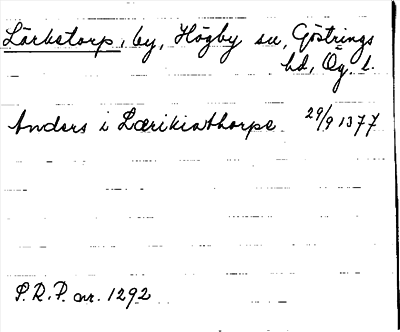 Lärkstorp, by, Högby sn, Göstrings
hd, Ög. l.
Anders i Lærikiathorpe 29/9 1377
S.R.P. nr. 1292